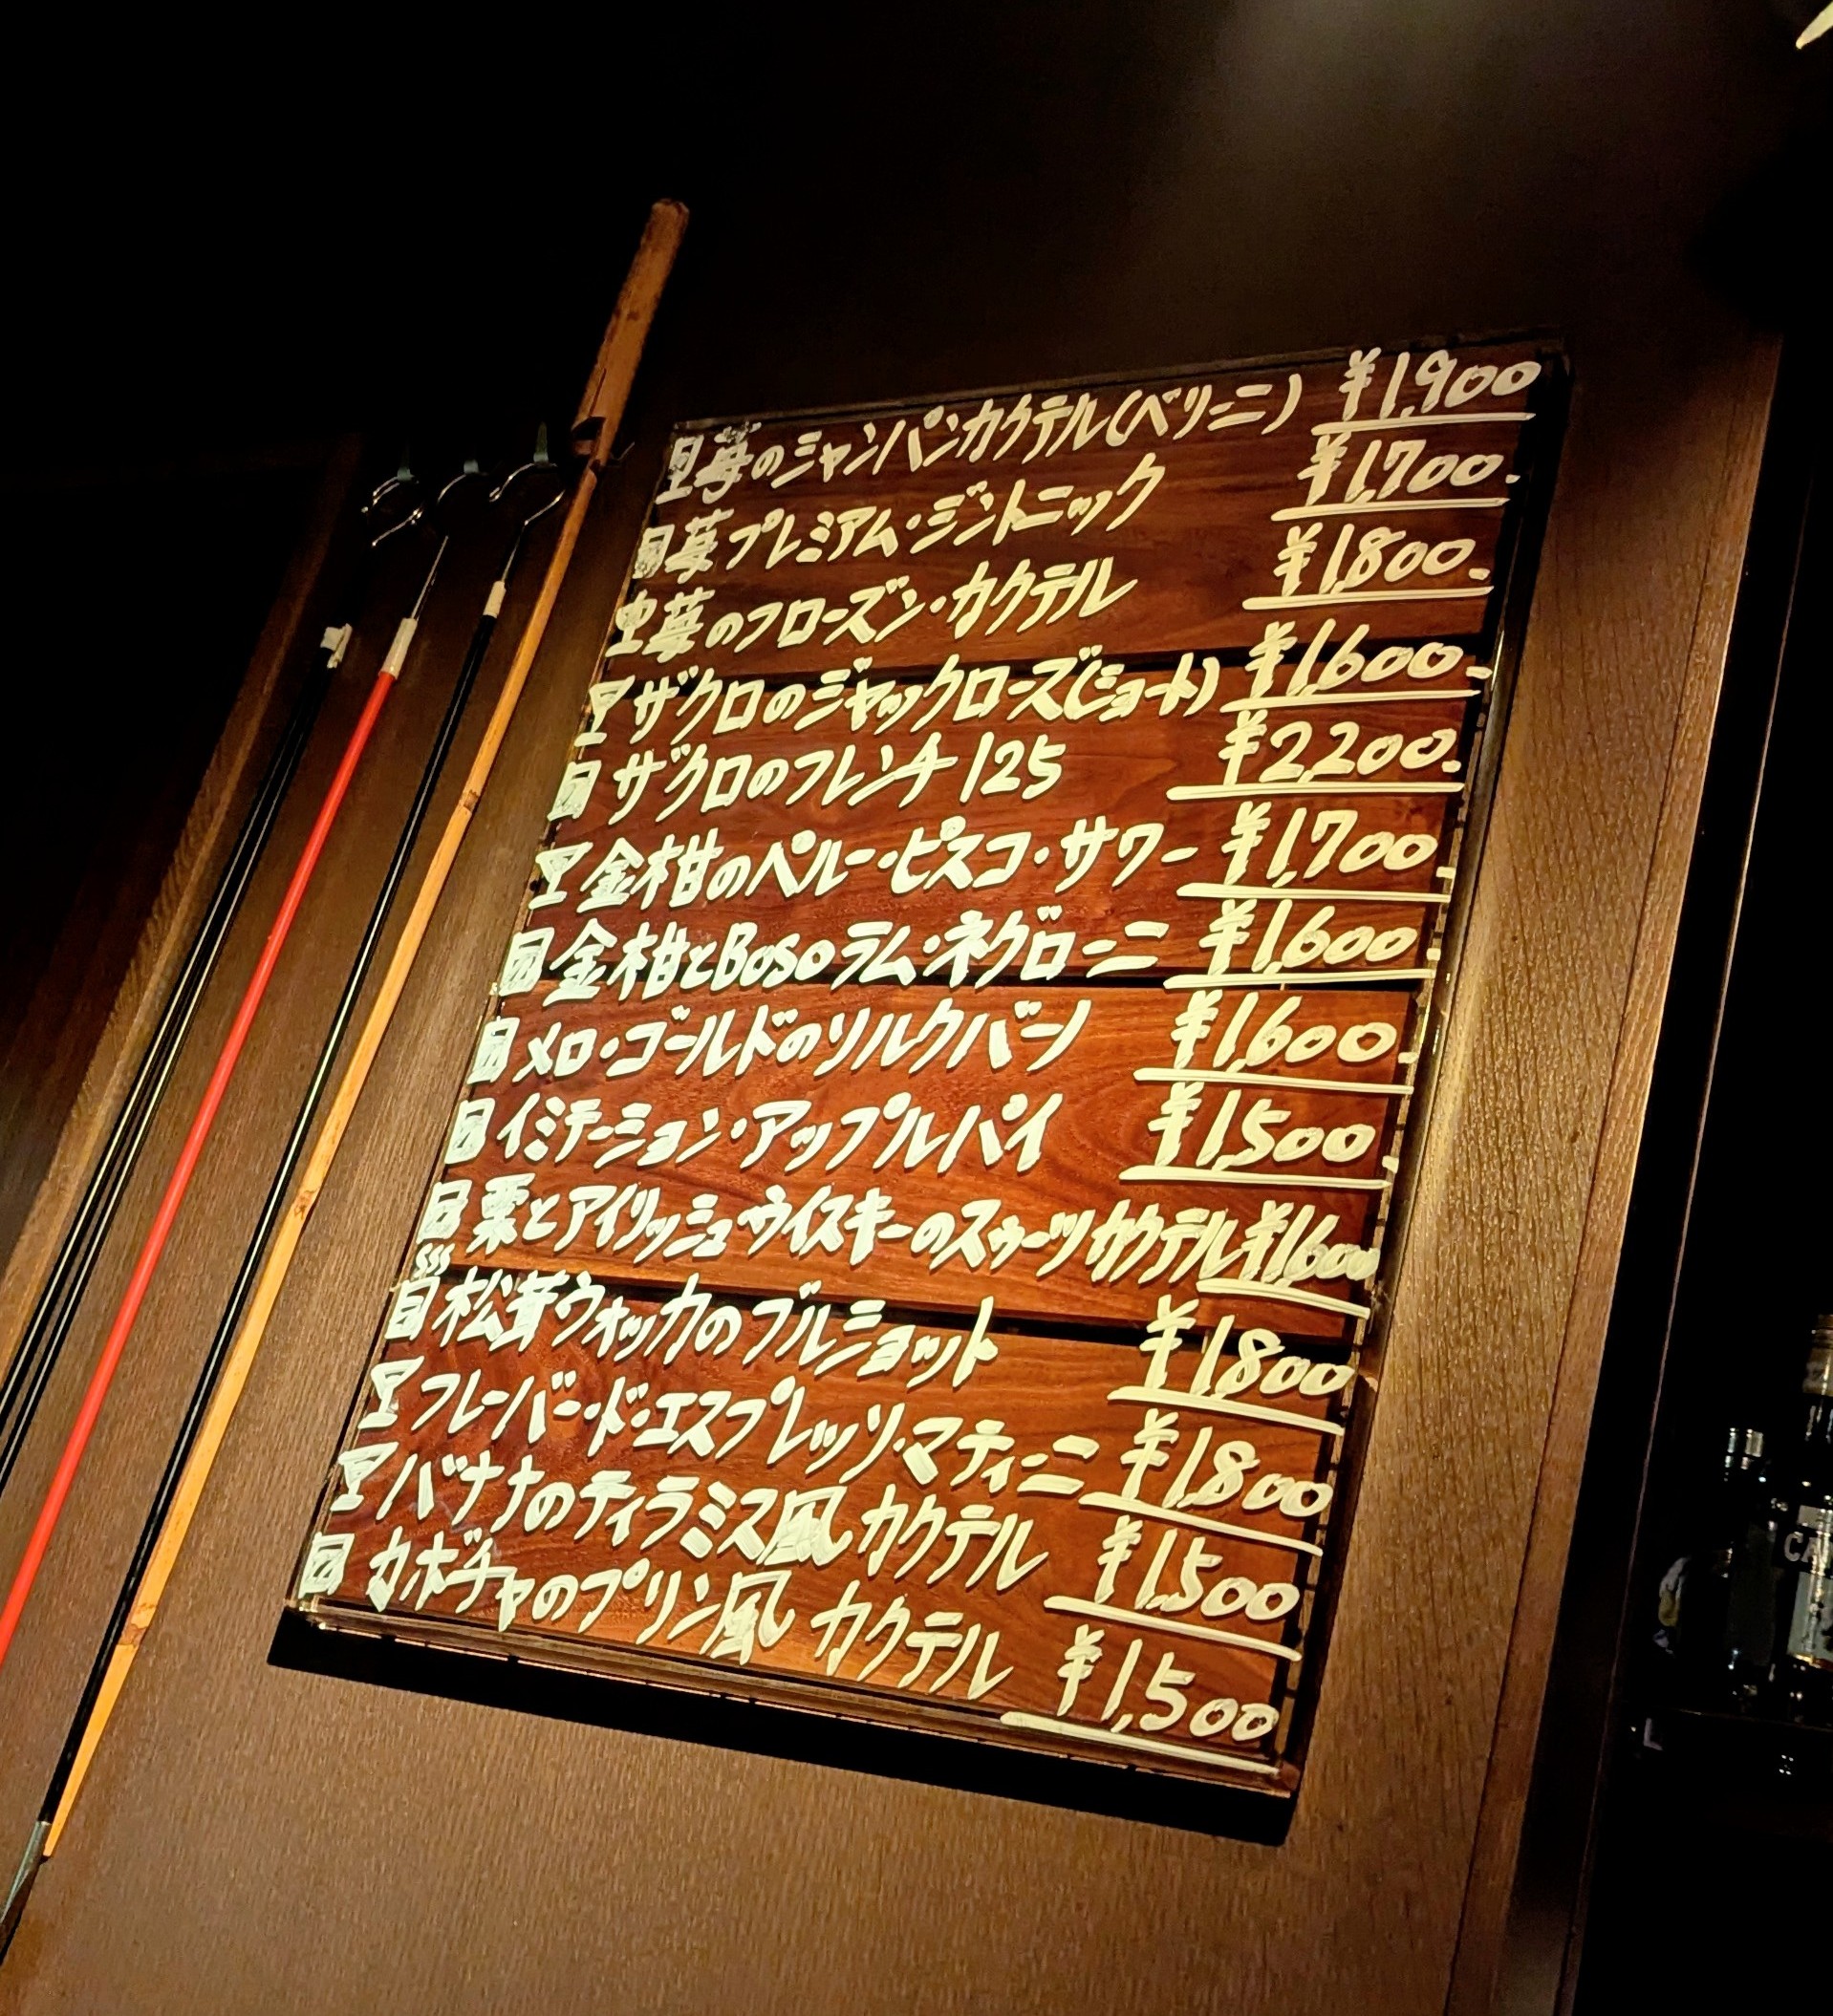 苺のシャンパンカクテル(ベリーニ) ¥1,900
苺プレミアム・ジントニック ¥1,700.
苺のフローズン・カクテル ¥1,800.
ザクロのジャックローズ(ショート) ¥1,600.
ザクロのフレンチ125 ¥2,200.
金柑のペルー・ピスコ・サワー ¥1,700.
金柑とBosoラム・ネグローニ ¥1,600.
メロ・ゴールドのソルクバーノ ¥1,600.
イミテーション・アップルパイ ¥1,500.
栗とアイリッシュウイスキーのスウィーツカクテル ¥1,600
松茸ウォッカのブルショット ¥1,800
フレーバード・エスプレッソ・マティーニ ¥1,800
バナナのティラミス風カクテル ¥1,500
カボチャのプリン風カクテル ¥1,500